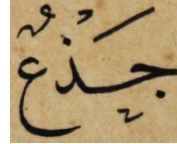 جذعٌ